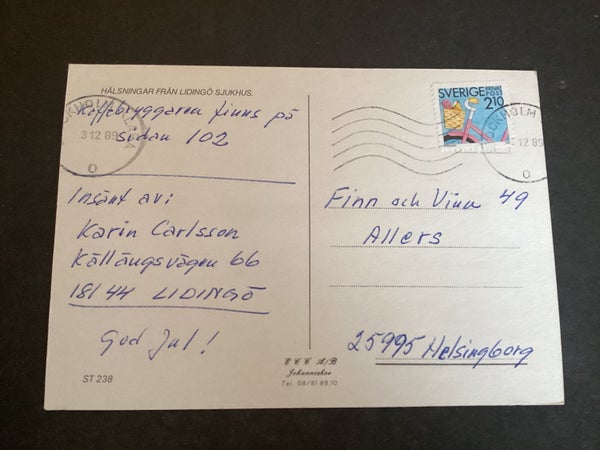 HÄLSNINGAR FRÅN LIDINGÖ SJUKHUS.
Kaffebryggaren finns på
sidan 102
Insänt av:
Karin Carlsson
Källängsvägen 66
181 44 LIDINGÖ
God Jul!
ST 238
E C C A/B
Johanneshov
Tel. 08/81 88 10
SVERIGE
POST
210
STOCKHOLM
3 12 89
STOCKHOLM
3 12 89
Finn och Vinn 49
Allers
25995 Helsingborg